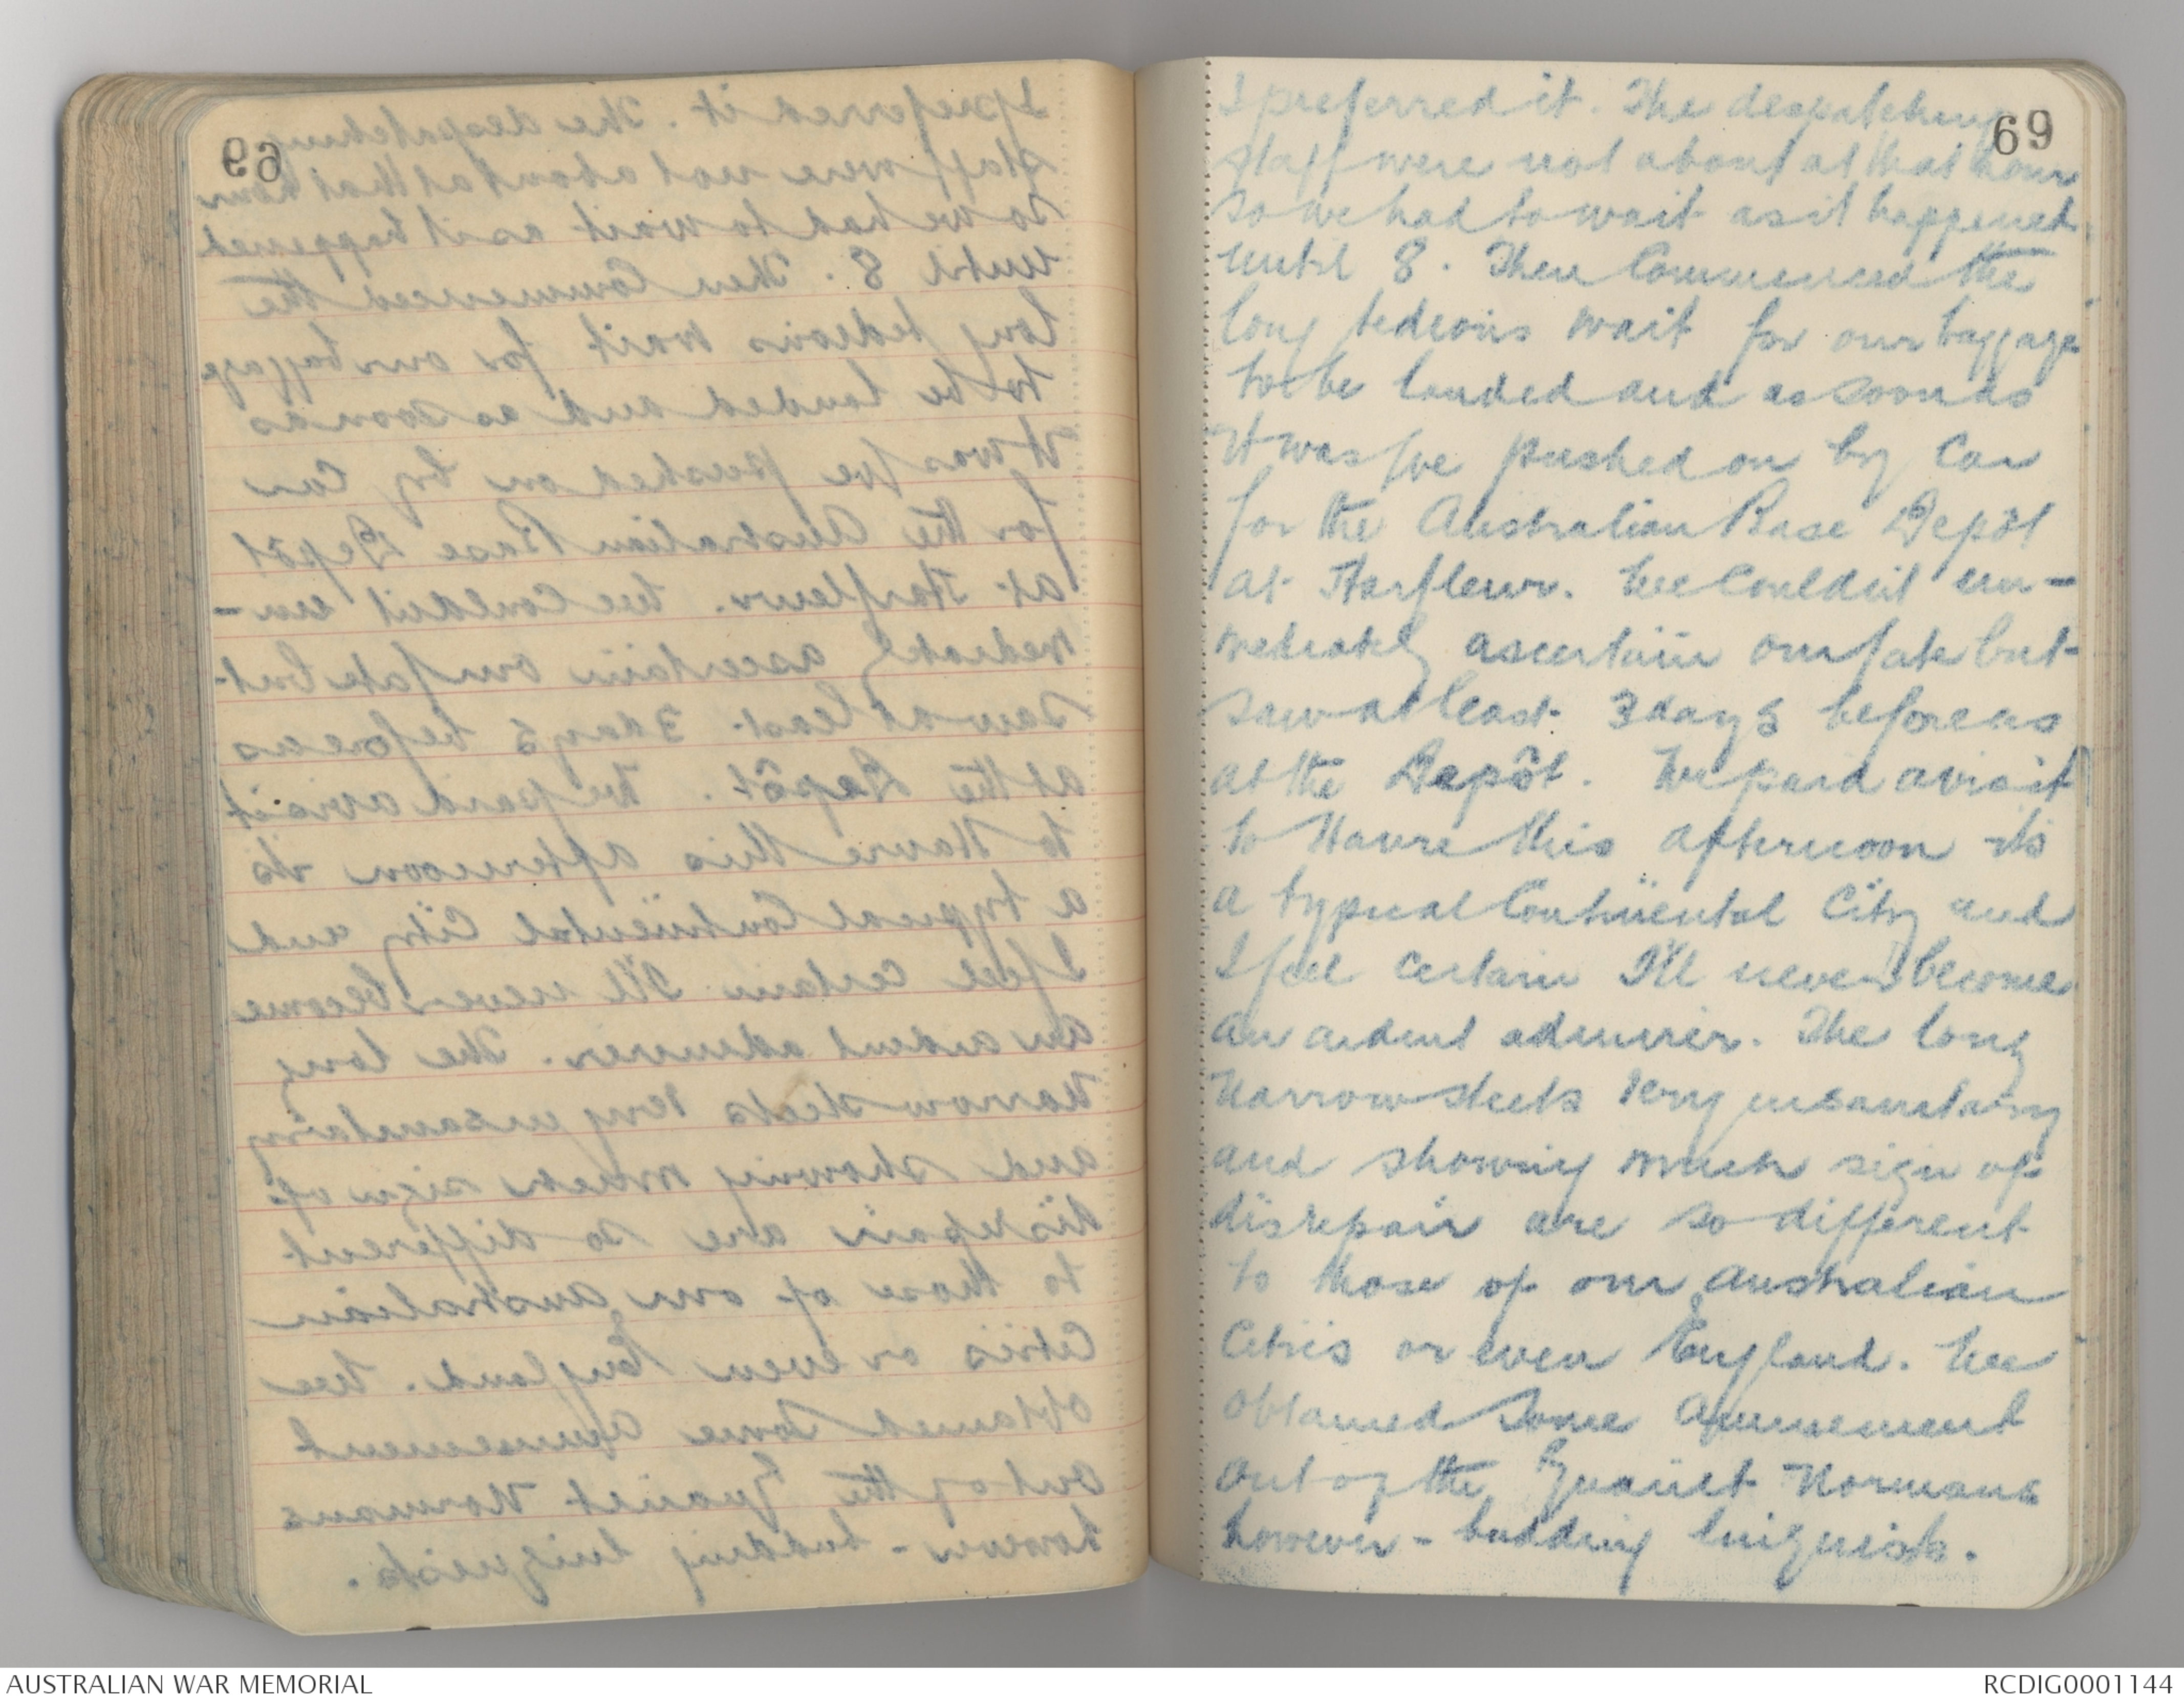 69
I preferred it. The despatching
staff were not about at that hour
so we had to wait as it happened
until 8. Then Commenced the
long tedious wait for our baggage
to be landed and as soon as
it was we pushed on by Car
for the Australian Base Depôt
at Harfleur. We couldnt im-
mediately ascertain our fate but
saw at least 3 days before us
at the Depôt. We paid a visit
to Havre this afternoon its
a typical Continental City and
I feel certain I'll never become
an ardent admirer. The long
narrow streets very insanitary
and showing much sign of
disrepair are so different
to those of our Australian
Cities or even England. We
obtained some amusement
out of the quaint Normans
however - budding linguists.
AUSTRALIAN WAR MEMORIAL
RCDIG0001144